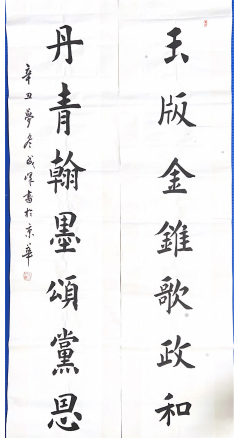 玉版金錐歌政和
丹青翰墨頌黨恩
辛丑夢冬成𣈶書於京華